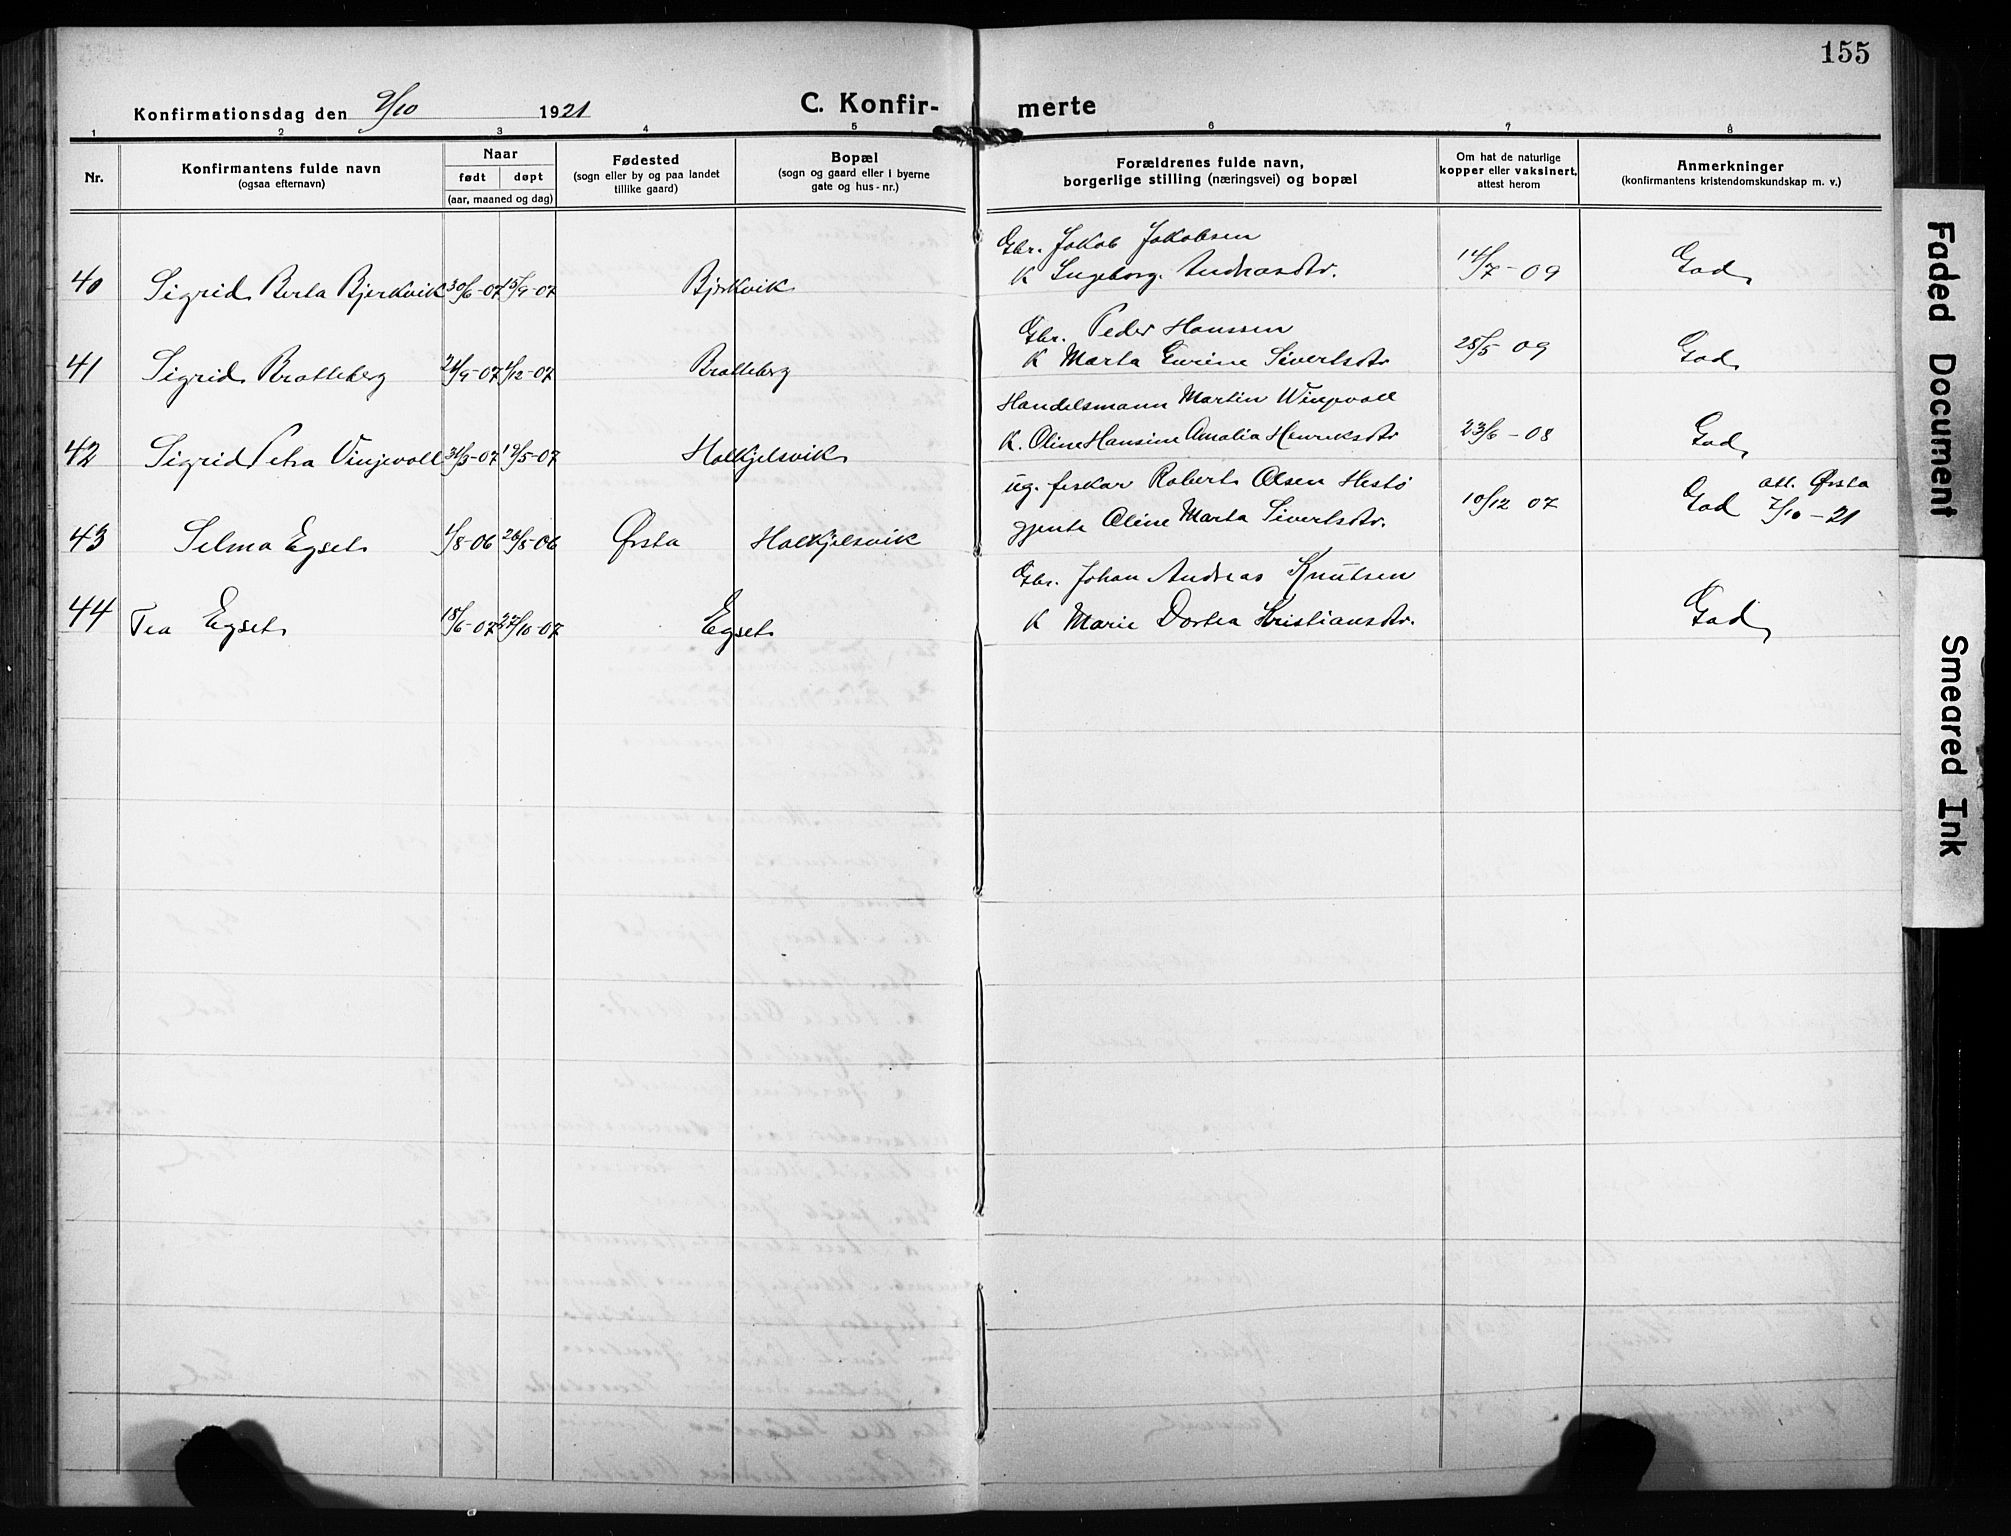 155
Konfirmationsdag den 9/10 1921 C. Konfir- merte
1 2 3 4 5 6 7 8
Nr. Konfirmantens fulde navn (ogsaa efternavn) Naar født døpt (aar, maaned og dag) Fødested (sogn eller by og paa landet tillike gaard) Bopæl (sogn og gaard eller i byerne gate og hus-nr.) Forældrenes fulde navn, borgerlige stilling (næringsvei) og bopæl Om hat de naturlige kopper eller vaksinert, attest herom Anmerkninger (konfirmantens kristendomskundskap m. v.)
Gbr. Jakob Jakobsen
40 Sigrid Berta Bjerkvik 30/6-07 15/9-07 Bjerkvik K Ingeborg Andreasdtr. 14/7-09 God
Gbr. Peder Hanssen
41 Sigrid Bratteberg 24/9-07 1/12-07 Bratteberg K Marta Gurine Sivertsdtr 25/5 09 God
Handelsmann Martin Vinjevoll
42 Sigrid Petra Vinjevoll 31/3-07 19/5-07 Halkjelsvik K. Oline Hansine Amalia Henriksdtr 23/6-08 God
ug. fiskar Robert Olsen Hestø
43 Selma Egset 1/8-06 26/8-06 Ørsta Halkjelsvik gjente Oline Marta Sivertsdtr. 10/12 07 God att. Ørsta 7/10-21
Gbr. Johan Andreas Knutsen
44 Tea Egset 18/6-07 27/10-07 Egset K Marie Dortea Kristiansdtr. God
Faded Document
Smeared Ink